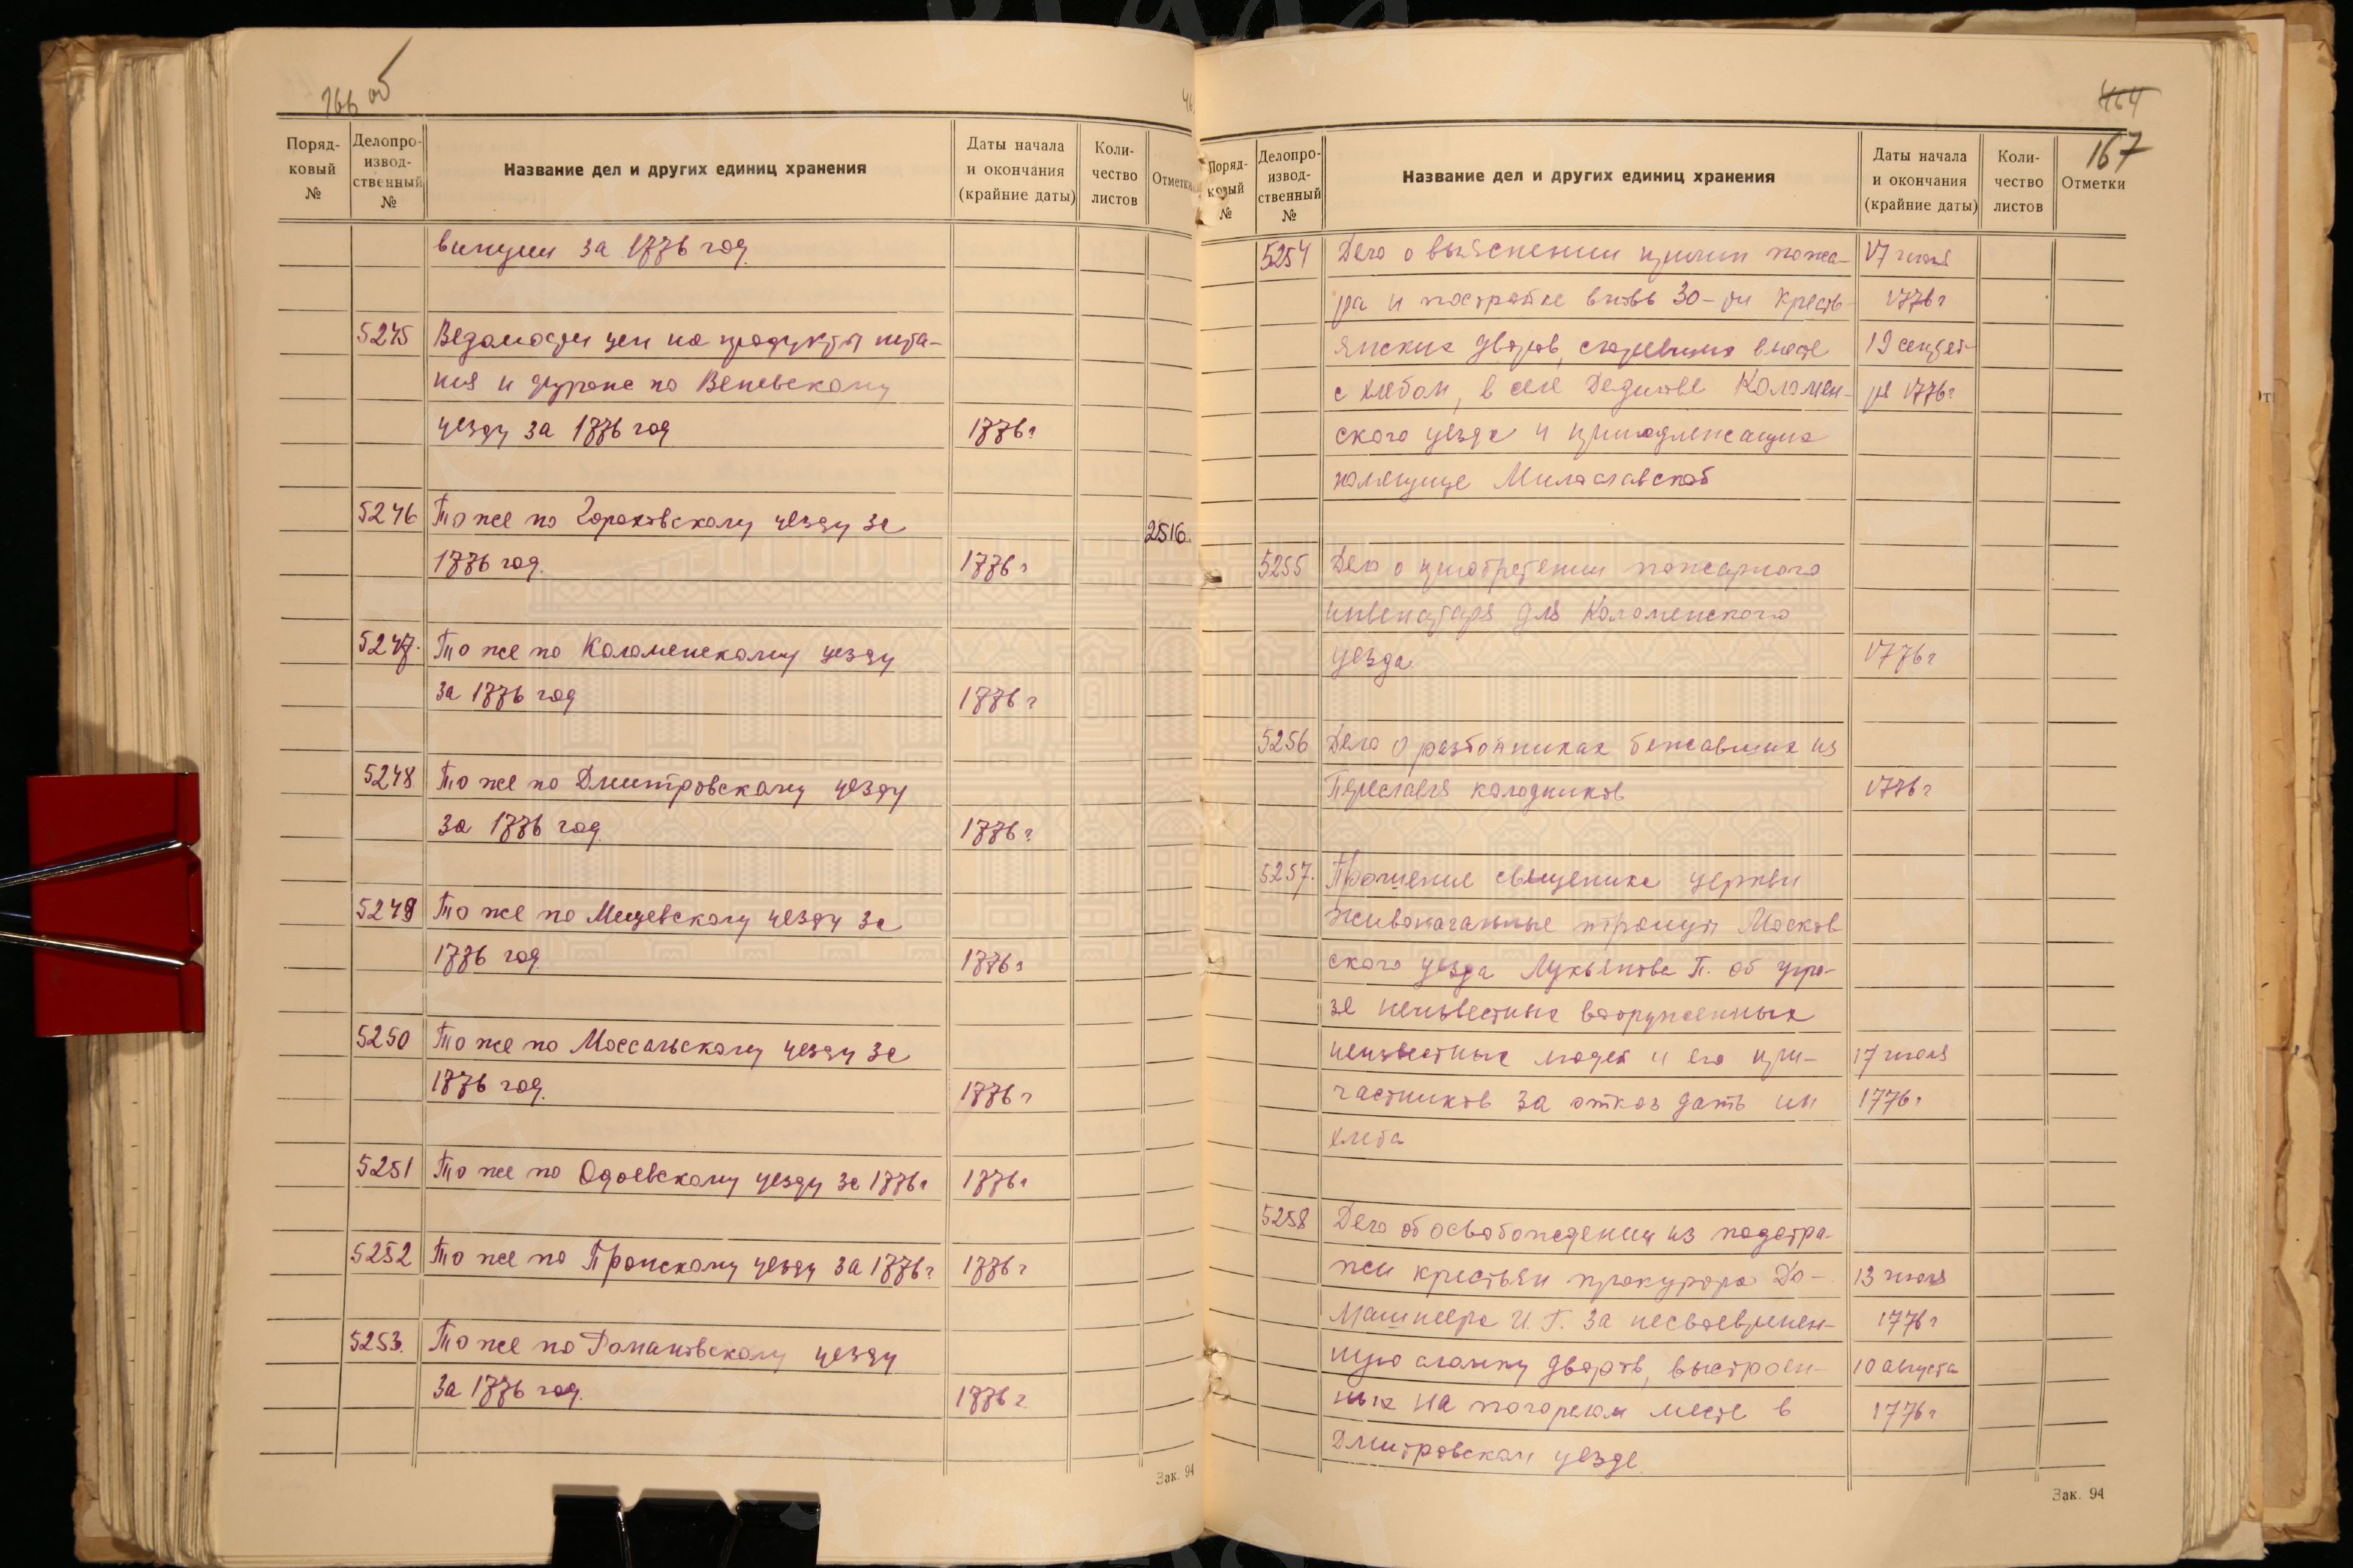 166 об
Поряд-
ковый
№
Делопро-
извод-
ственный
№
Название дел и других единиц хранения
Даты начала
и окончания
(крайние даты)
Коли-
чество
листов
Отметки
винции за 1776 год.
5245 Ведомости цен на продукты пита-
ния и фураже по Веневскому
уезду за 1776 год 1776 г
5246 То же по Гороховскому уезду за
2516
1776 год. 1776 г
5247. То же по Коломенскому уезду
за 1776 год 1776 г
5248 То же по Дмитровскому уезду
за 1776 год. 1776 г.
5249 То же по Мещевскому уезду за
1776 год. 1776 г
5250 То же по Моссальскому уезду за
1776 год. 1776 г
5251 То же по Одоевскому уезду за 1776 г 1776 г
5252 То же по Пронскому уезду за 1776 г 1776 г
5253. То же по Романовскому уезду
за 1776 год. 1776 г
Зак. 94
464
167
Поряд-
ковый
№
Делопро-
извод-
ственный
№
Название дел и других единиц хранения
Даты начала
и окончания
(крайние даты)
Коли-
чество
листов
Отметки
5254 Дело о выяснении причин пожа- 17 июля
ра и постройке вновь 30-ти кресть- 1776 г
янских дворов, сгоревших вместе 19 сентяб-
с хлебом, в селе Дединове Коломен- ря 1776 г
ского уезда и принадлежащих
помещице Милославской
5255 Дело о приобретении пожарного
инвентаря для Коломенского
уезда 1776 г
5256 Дело о разбойниках бежавших из
Переславля колодников 1776 г
5257. Прошение священника церкви
живоначальные троицы Москов
ского уезда Лукьянова П. об угро-
зе неизвестных вооруженных
неизвестных людей и его при- 17 июля
частников за отказ дать им 1776 г
хлеба
5258 Дело об освобождении из подстра-
жи крестьян прокурора До- 13 июля
машнева И. Г. за несвоевремен- 1776 г
ную сломку дворов, выстроен- 10 августа
ных на погорелом месте в 1776 г
Дмитровском уезде
Зак. 94